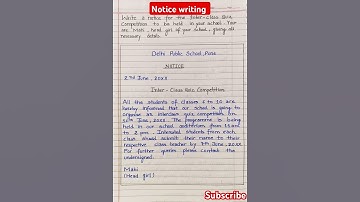 Notice writing
Write a notice for the Inter-Class Quiz
Competition to be held in your school. You
are Mahi, head girl of your school, giving all
necessary details.
Delhi Public School, Pune
NOTICE
2nd June, 20XX
Inter-Class Quiz Competition
All the students of classes 6 to 10 are
hereby informed that our school is going to
organise an interclass quiz competition on
10th June, 20XX. The programme is being
held in our school auditorium from 11 a.m
to 2 p.m. Interested students from each
class should submit their name to their
respective class teacher by 7th June, 20XX.
For further queries please contact the
undersigned.
Mahi
(Head girl)
Subscribe